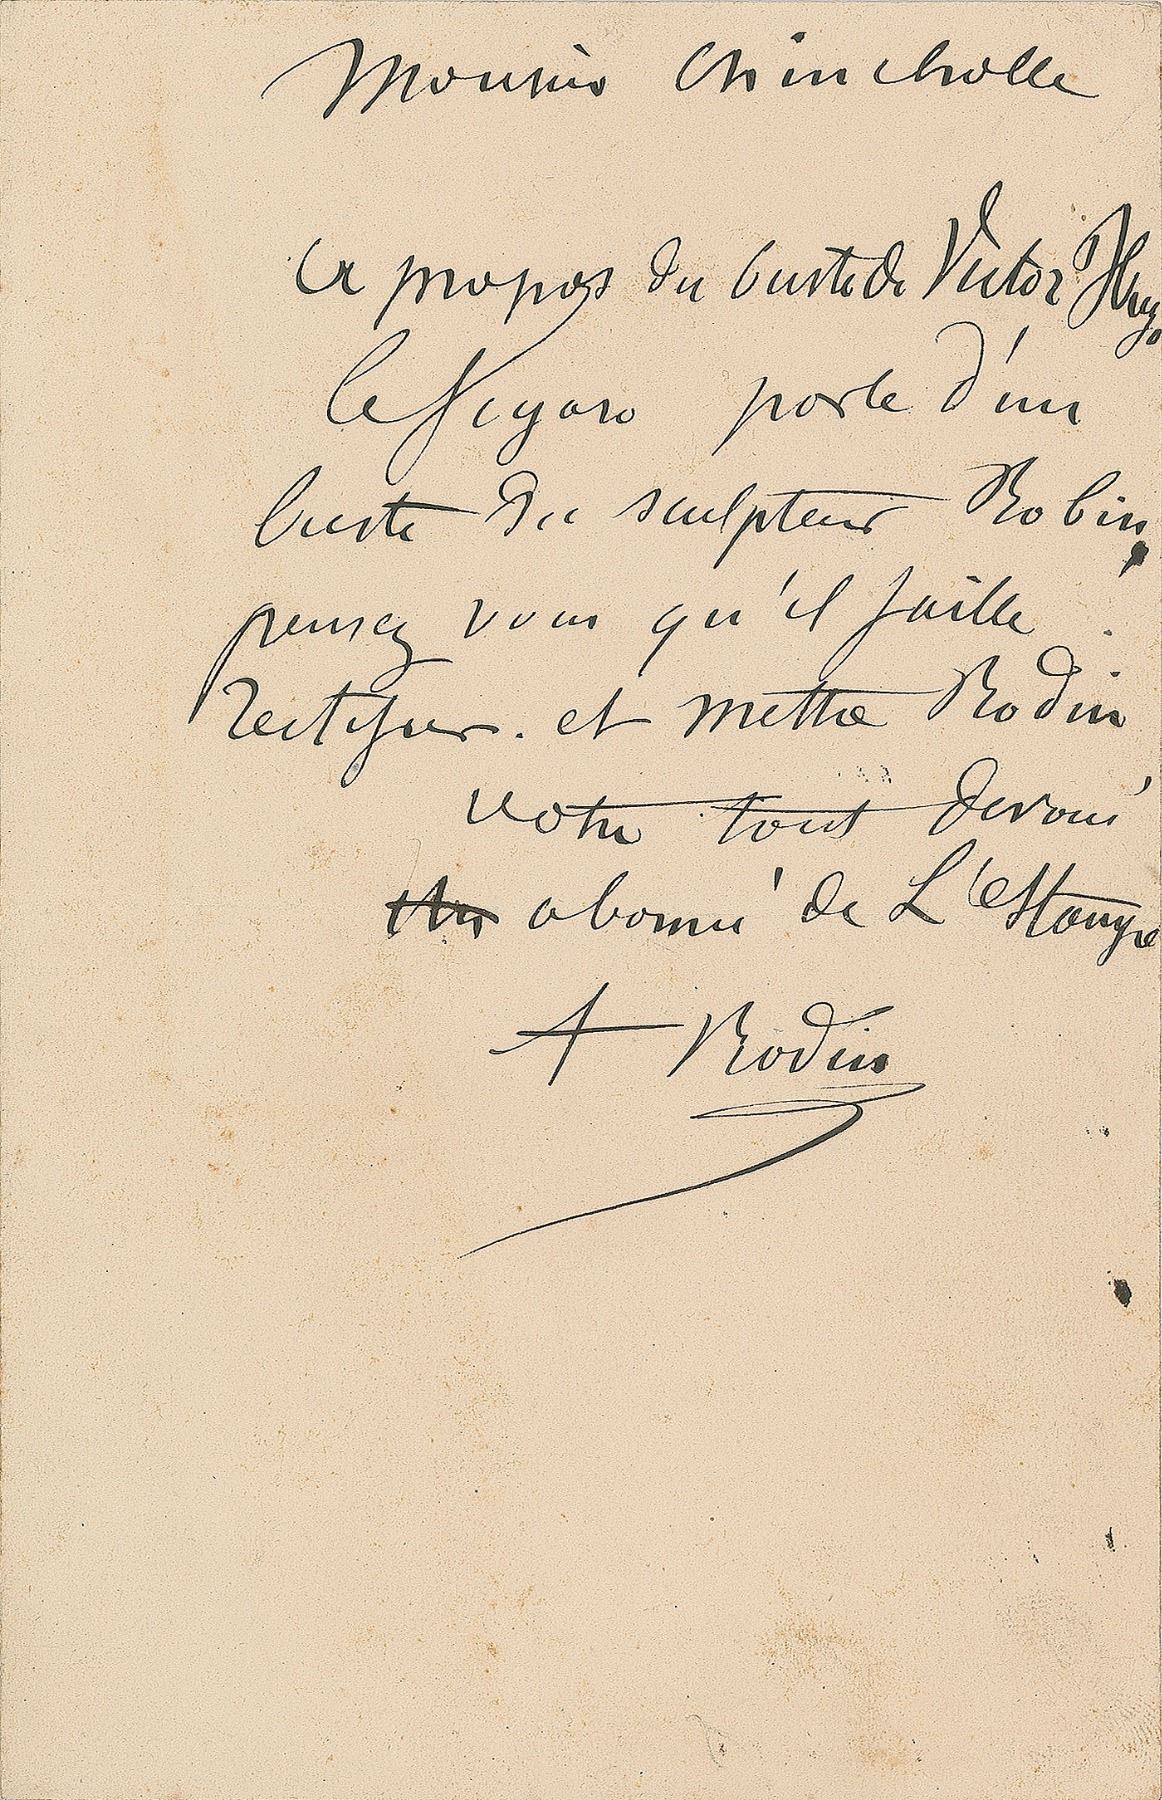 Monsieur Chincholle
A propos du buste de Victor Hugo
le Figaro parle d'un
buste du sculpteur Robin,
pensez vous qu'il faille
rectifier. et mettre Rodin
votre tout dévoué
abonné de L'Estampe
A Rodin